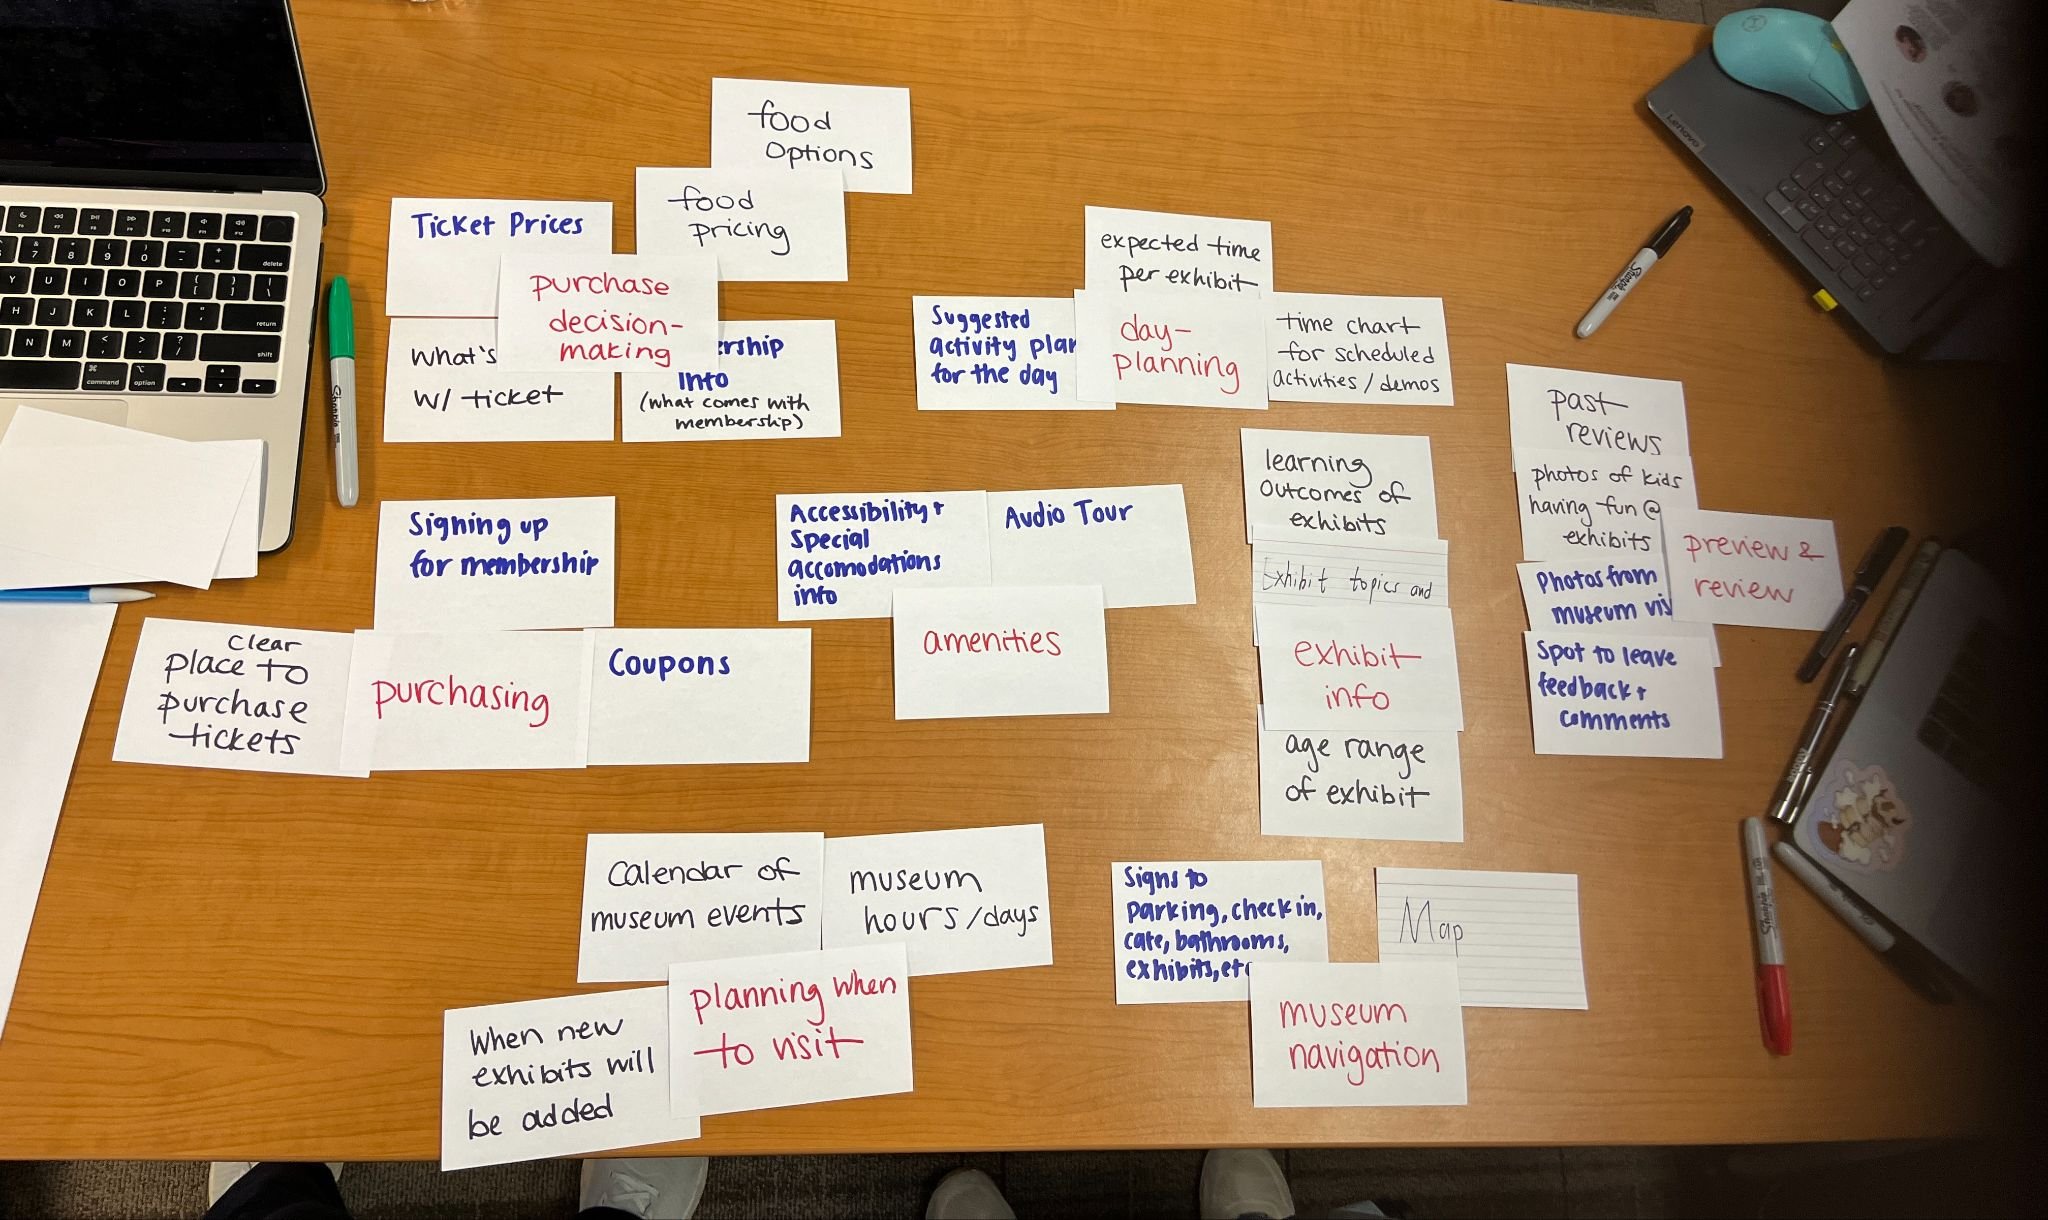 food
Options
food
pricing
Ticket Prices
purchase
decision-
making
What's
w/ ticket
ership
Info
(what comes with
membership)
expected time
per exhibit
Suggested
activity plan
for the day
day-
planning
time chart
for scheduled
activities / demos
past
reviews
photos of kids
having fun @
exhibits
Photos from
museum vis
Spot to leave
feedback +
comments
preview &
review
learning
Outcomes of
exhibits
Exhibit topics and
exhibit
info
age range
of exhibit
Signing up
for membership
clear
place to
purchase
tickets
purchasing
Coupons
Accessibility +
Special
accomodations
info
Audio Tour
amenities
Calendar of
museum events
museum
hours/days
When new
exhibits will
be added
planning when
to visit
Signs to
parking, check in,
cafe, bathrooms,
exhibits, etc
Map
museum
navigation
Lenovo
Sharpie
Sharpie
Sharpie